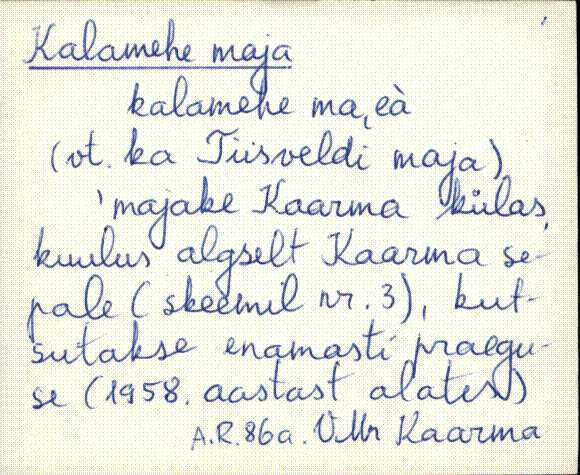 Kalamehe maja
kalamehe ma,eà
(vt. ka Tiisveldi maja)
'majake Kaarma külas,
kuulus algselt Kaarma se-
pale (skeemil nr. 3), kut-
sutakse enamasti praegu-
se (1958. aastast alates)
A.R. 86a. VMr Kaarma